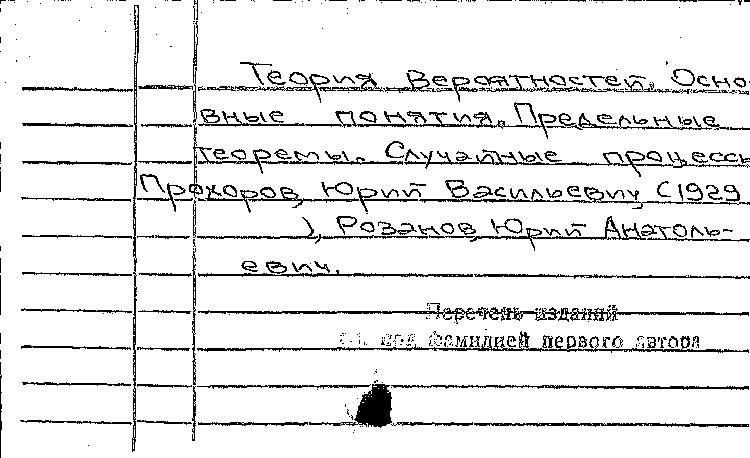 Теория вероятностей. Осно-
вные понятия. Предельные
теоремы. Случайные процессы
Прохоров, Юрий Васильевич, (1929
), Розанов, Юрий Анатоль-
евич.
Перечень изданий
см. под фамилией первого автора